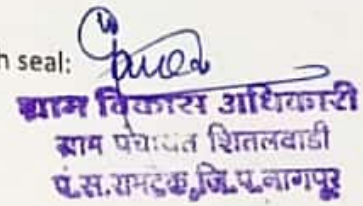 n seal:
ग्राम विकास अधिकारी
ग्राम पंचायत शितलवाडी
पं.स.रामटेक,जि.प.नागपूर